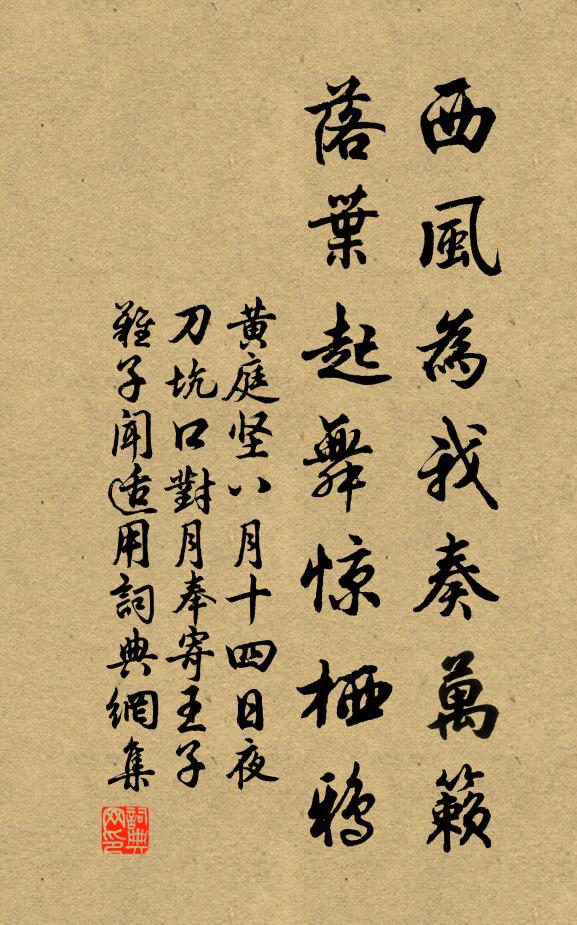 西風為我奏萬籟
落葉起舞惊栖鴉
黄庭坚八月十四日夜
刀坑口對月奉寄王子
難子聞适用詞典網集
詞典网印